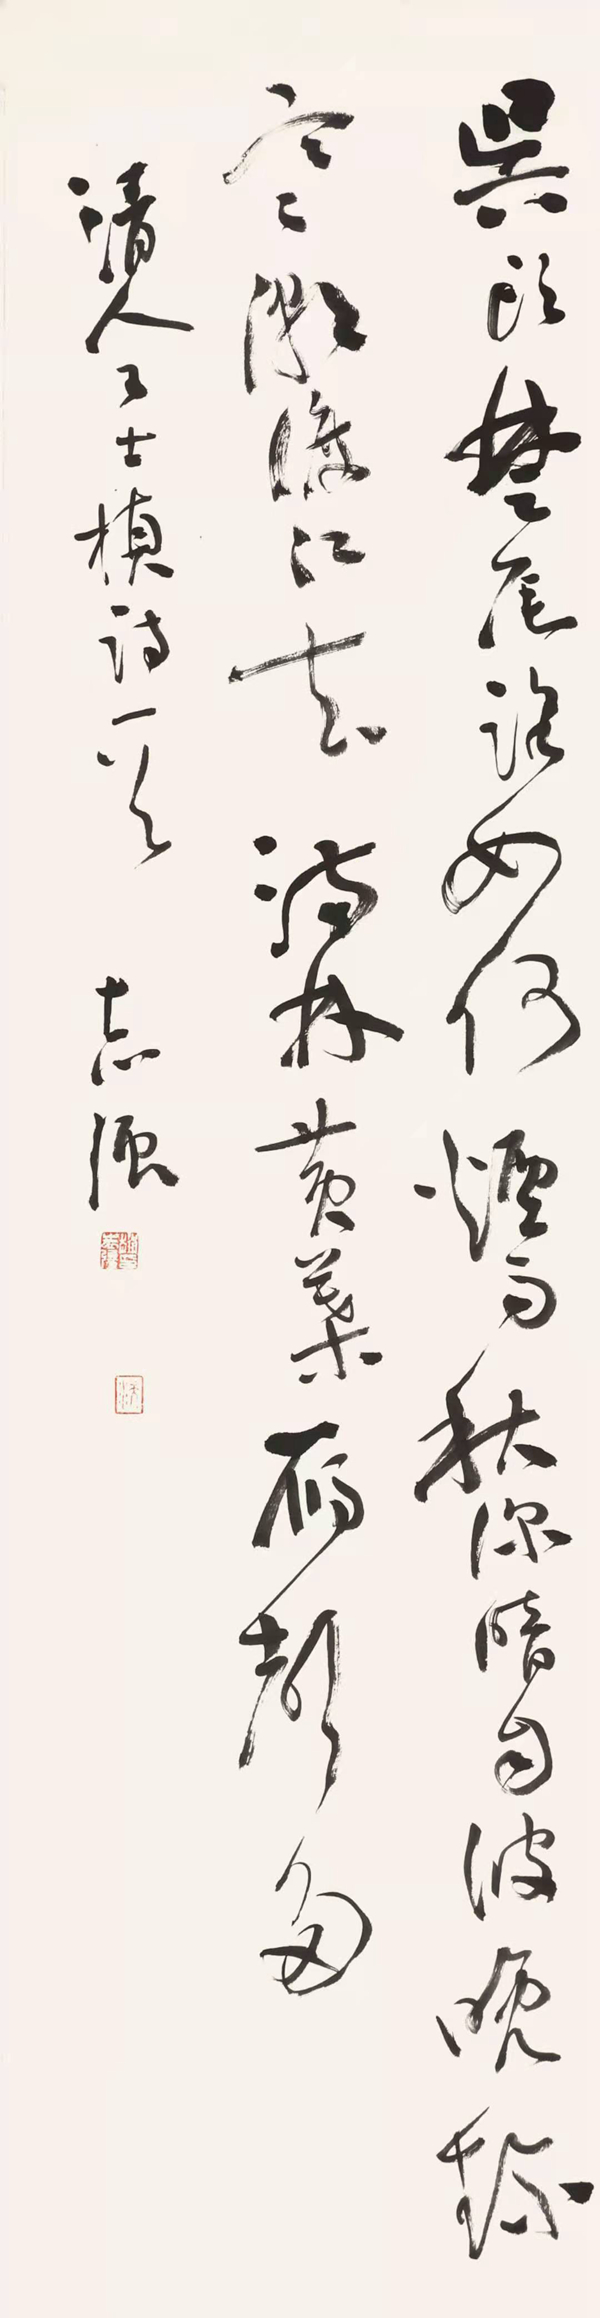 吳頭楚尾路如何煙雨秋深暗白波晚趁
寒潮渡江去滿林黃葉雁聲多
清人王士楨詩一首 志